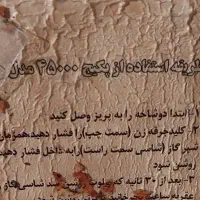 طریقه استفاده از پکیج ۴۵۰۰۰ مدل
۱- ابتدا دوشاخه را به پریز وصل کنید
۲- کلیدجرقه زن (سمت چپ) را فشار دهید همزمان
شیر گاز (شاسی سمت راست) را به داخل فشار دهید
روشن شود
۳- بعد از ۳۰ ثانیه که پیلوت روشن شد شاسی گاز